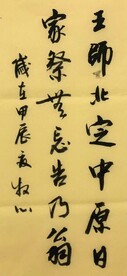 王師北定中原日
家祭無忘告乃翁
歲在甲辰夏